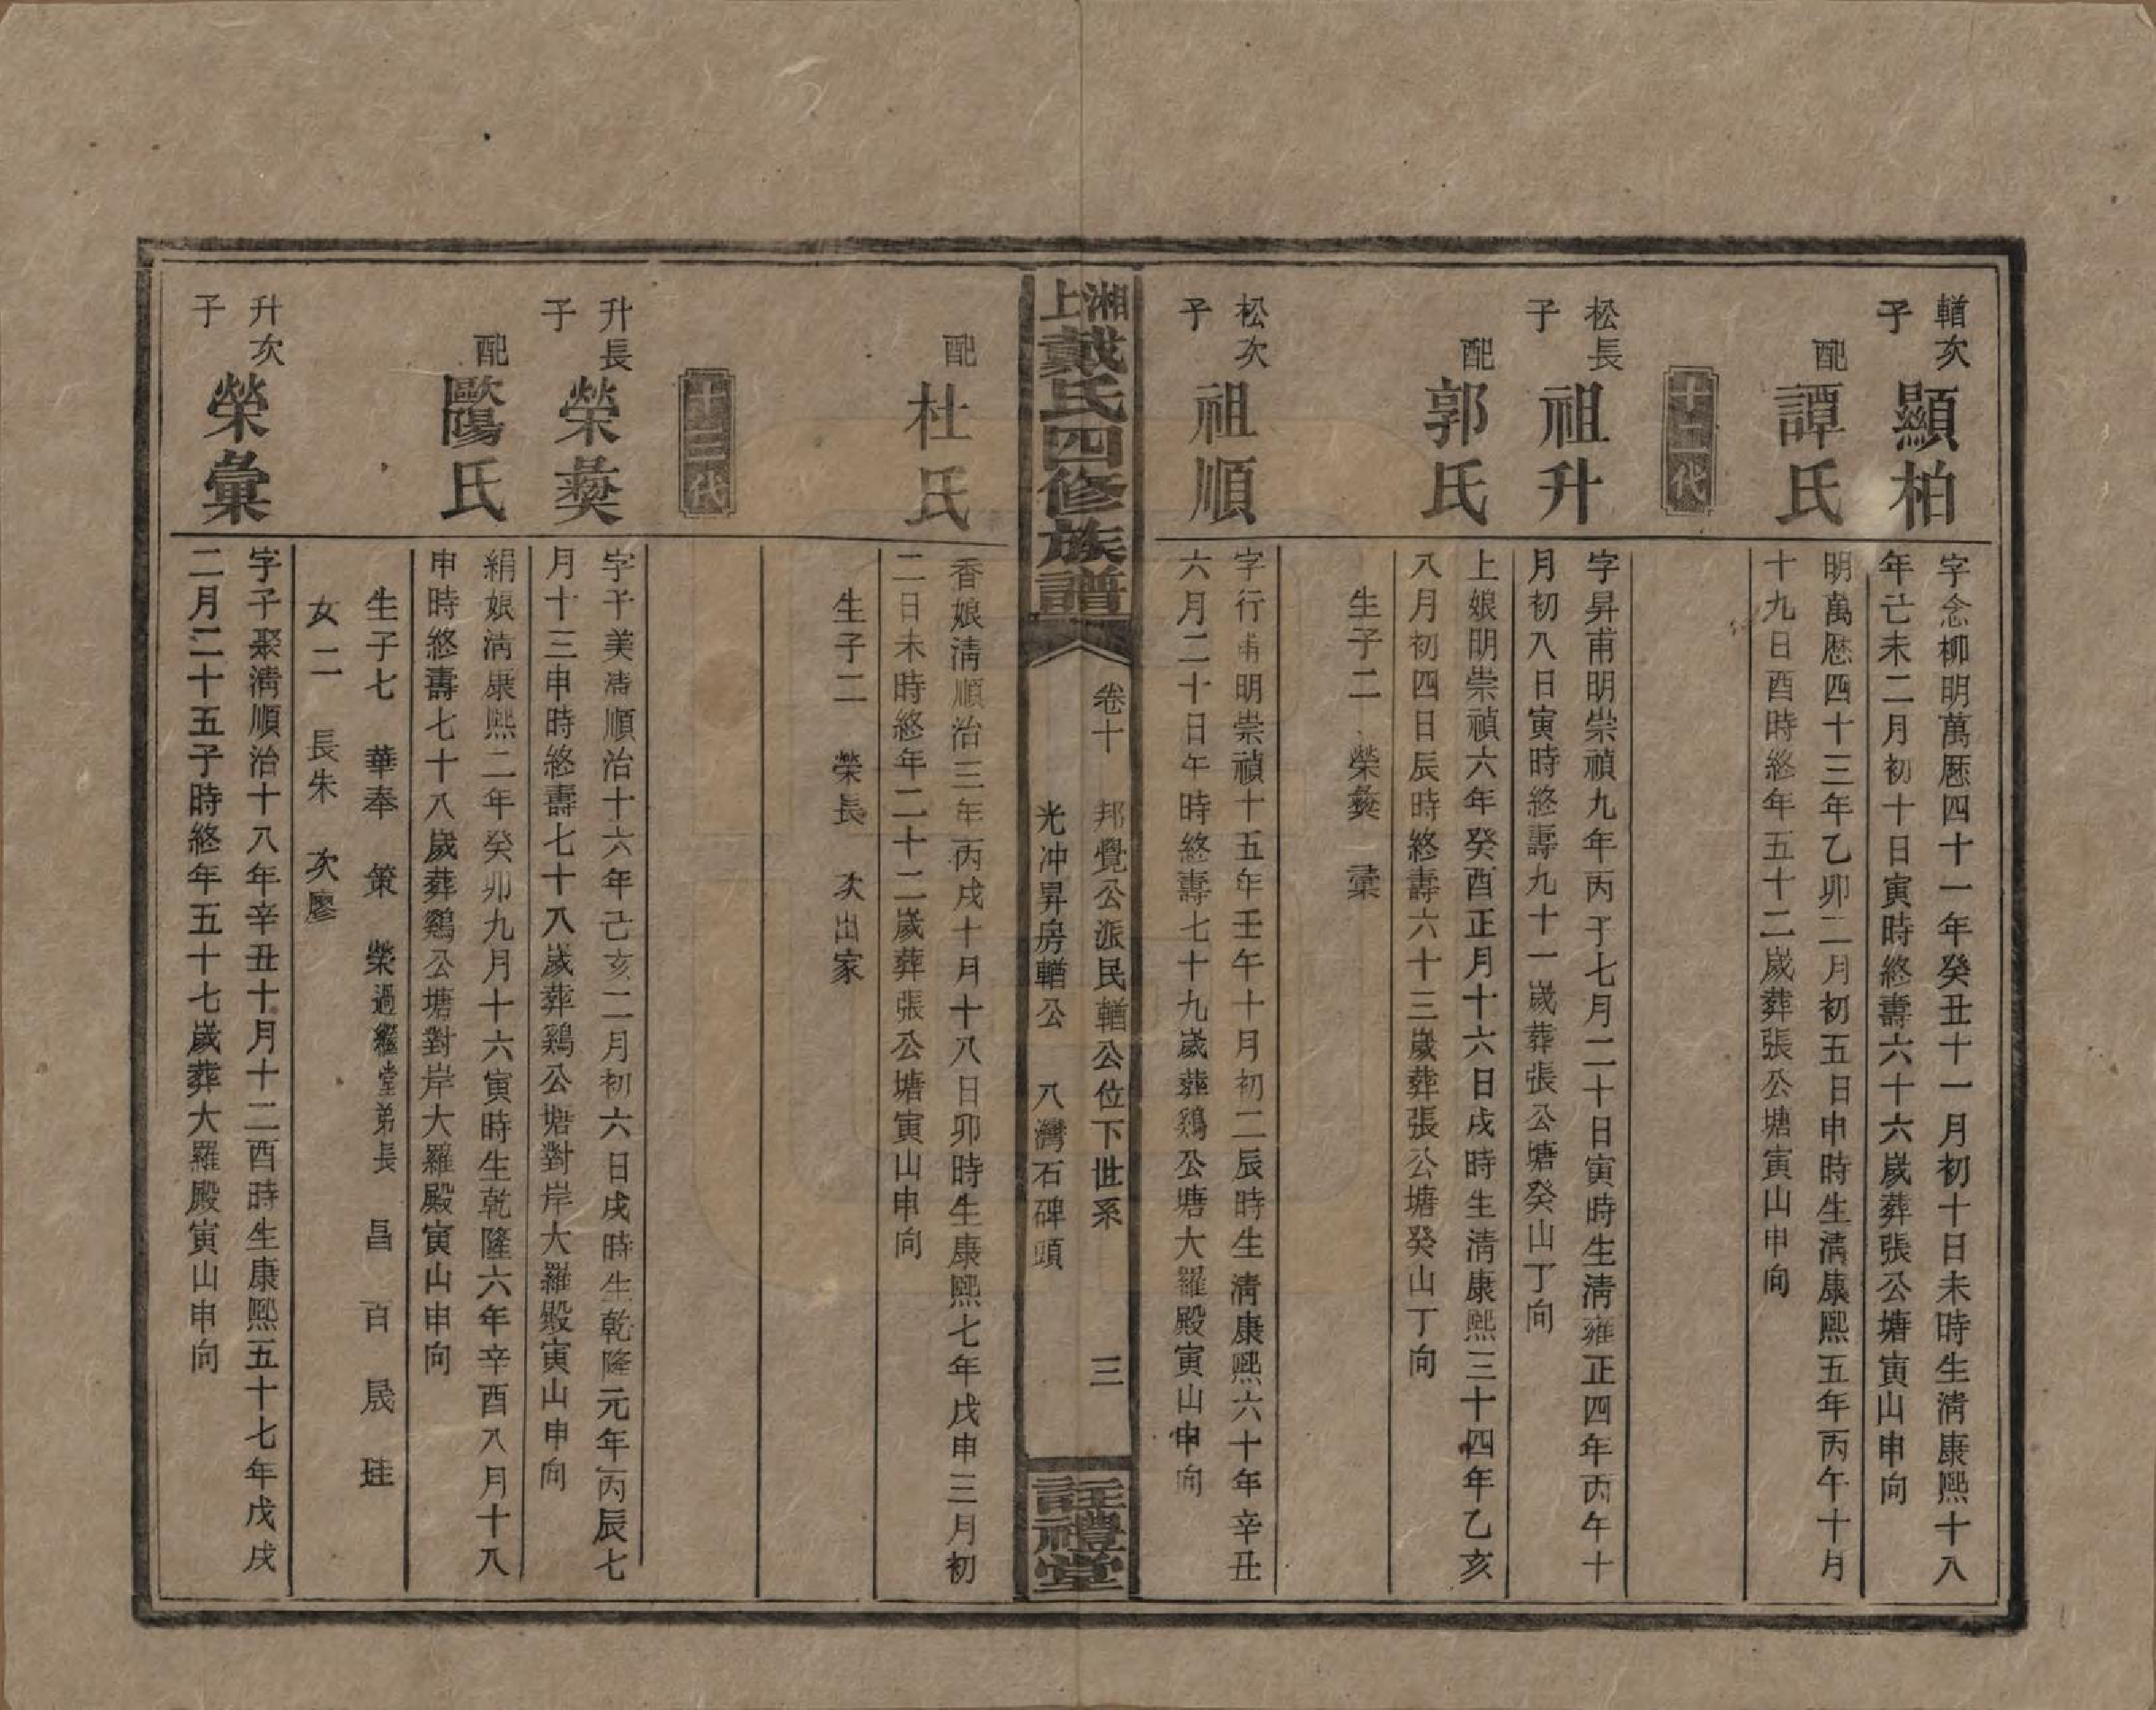 輶次
子
顯柏
字念柳明萬厯四十一年癸丑十一月初十日未時生淸康熙十八
年亡未二月初十日寅時終壽六十六歲葬張公塘寅山申向
配
譚氏
明萬厯四十三年乙卯二月初五日申時生淸康熙五年丙午十月
十九日酉時終年五十二歲葬張公塘寅山申向
十二代
松長
子
祖升
字昇甫明崇禎九年丙子七月二十日寅時生淸雍正四年丙午十
月初八日寅時終壽九十一歲葬張公塘癸山丁向
配
郭氏
上娘明崇禎六年癸酉正月十六日戌時生淸康熙三十四年乙亥
八月初四日辰時終壽六十三歲葬張公塘癸山丁向
生子二 榮彜 彙
松次
子
祖順
字行甫明崇禎十五年壬午十月初二辰時生淸康熙六十年辛丑
六月二十日午時終壽七十九歲葬鷄公塘大羅殿寅山申向
湘上戴氏四修族譜
卷十 邦覺公派民輶公位下世系 三
光冲昇房輶公 八灣石碑頭
註禮堂
配
杜氏
香娘淸順治三年丙戌十月十八日卯時生康熙七年戊申三月初
二日未時終年二十二歲葬張公塘寅山申向
生子二 榮長 次出家
十三代
升長
子
榮彜
字子美淸順治十六年己亥二月初六日戌時生乾隆元年丙辰七
月十三申時終壽七十八歲葬鷄公塘對岸大羅殿寅山申向
配
歐陽氏
絹娘淸康熙二年癸卯九月十六寅時生乾隆六年辛酉八月十八
申時終壽七十八歲葬鷄公塘對岸大羅殿寅山申向
生子七 華奉 策 榮過繼堂弟長 昌 百 晟 珪
女二 長朱 次廖
升次
子
榮彙
字子聚淸順治十八年辛丑十月十二酉時生康熙五十七年戊戌
二月二十五子時終年五十七歲葬大羅殿寅山申向